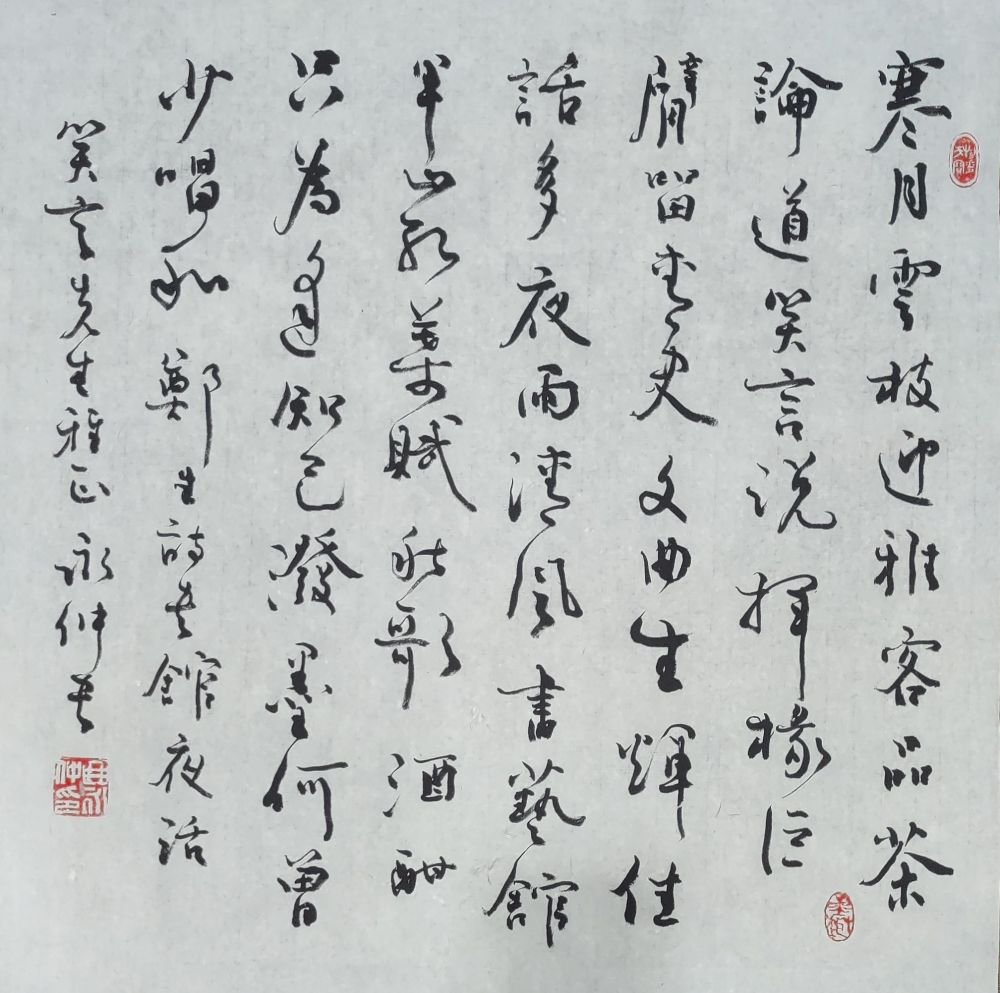 寒月雲枝迎雅客品茶
論道笑言説揮椽巨
臂留青史文曲生輝佳
話多夜雨清風書藝館
半山紅葉賦秋歌酒酣
只為逢知己潑墨何曾
少唱和 鄭生詩书館夜话
笑言先生雅正 永仲书